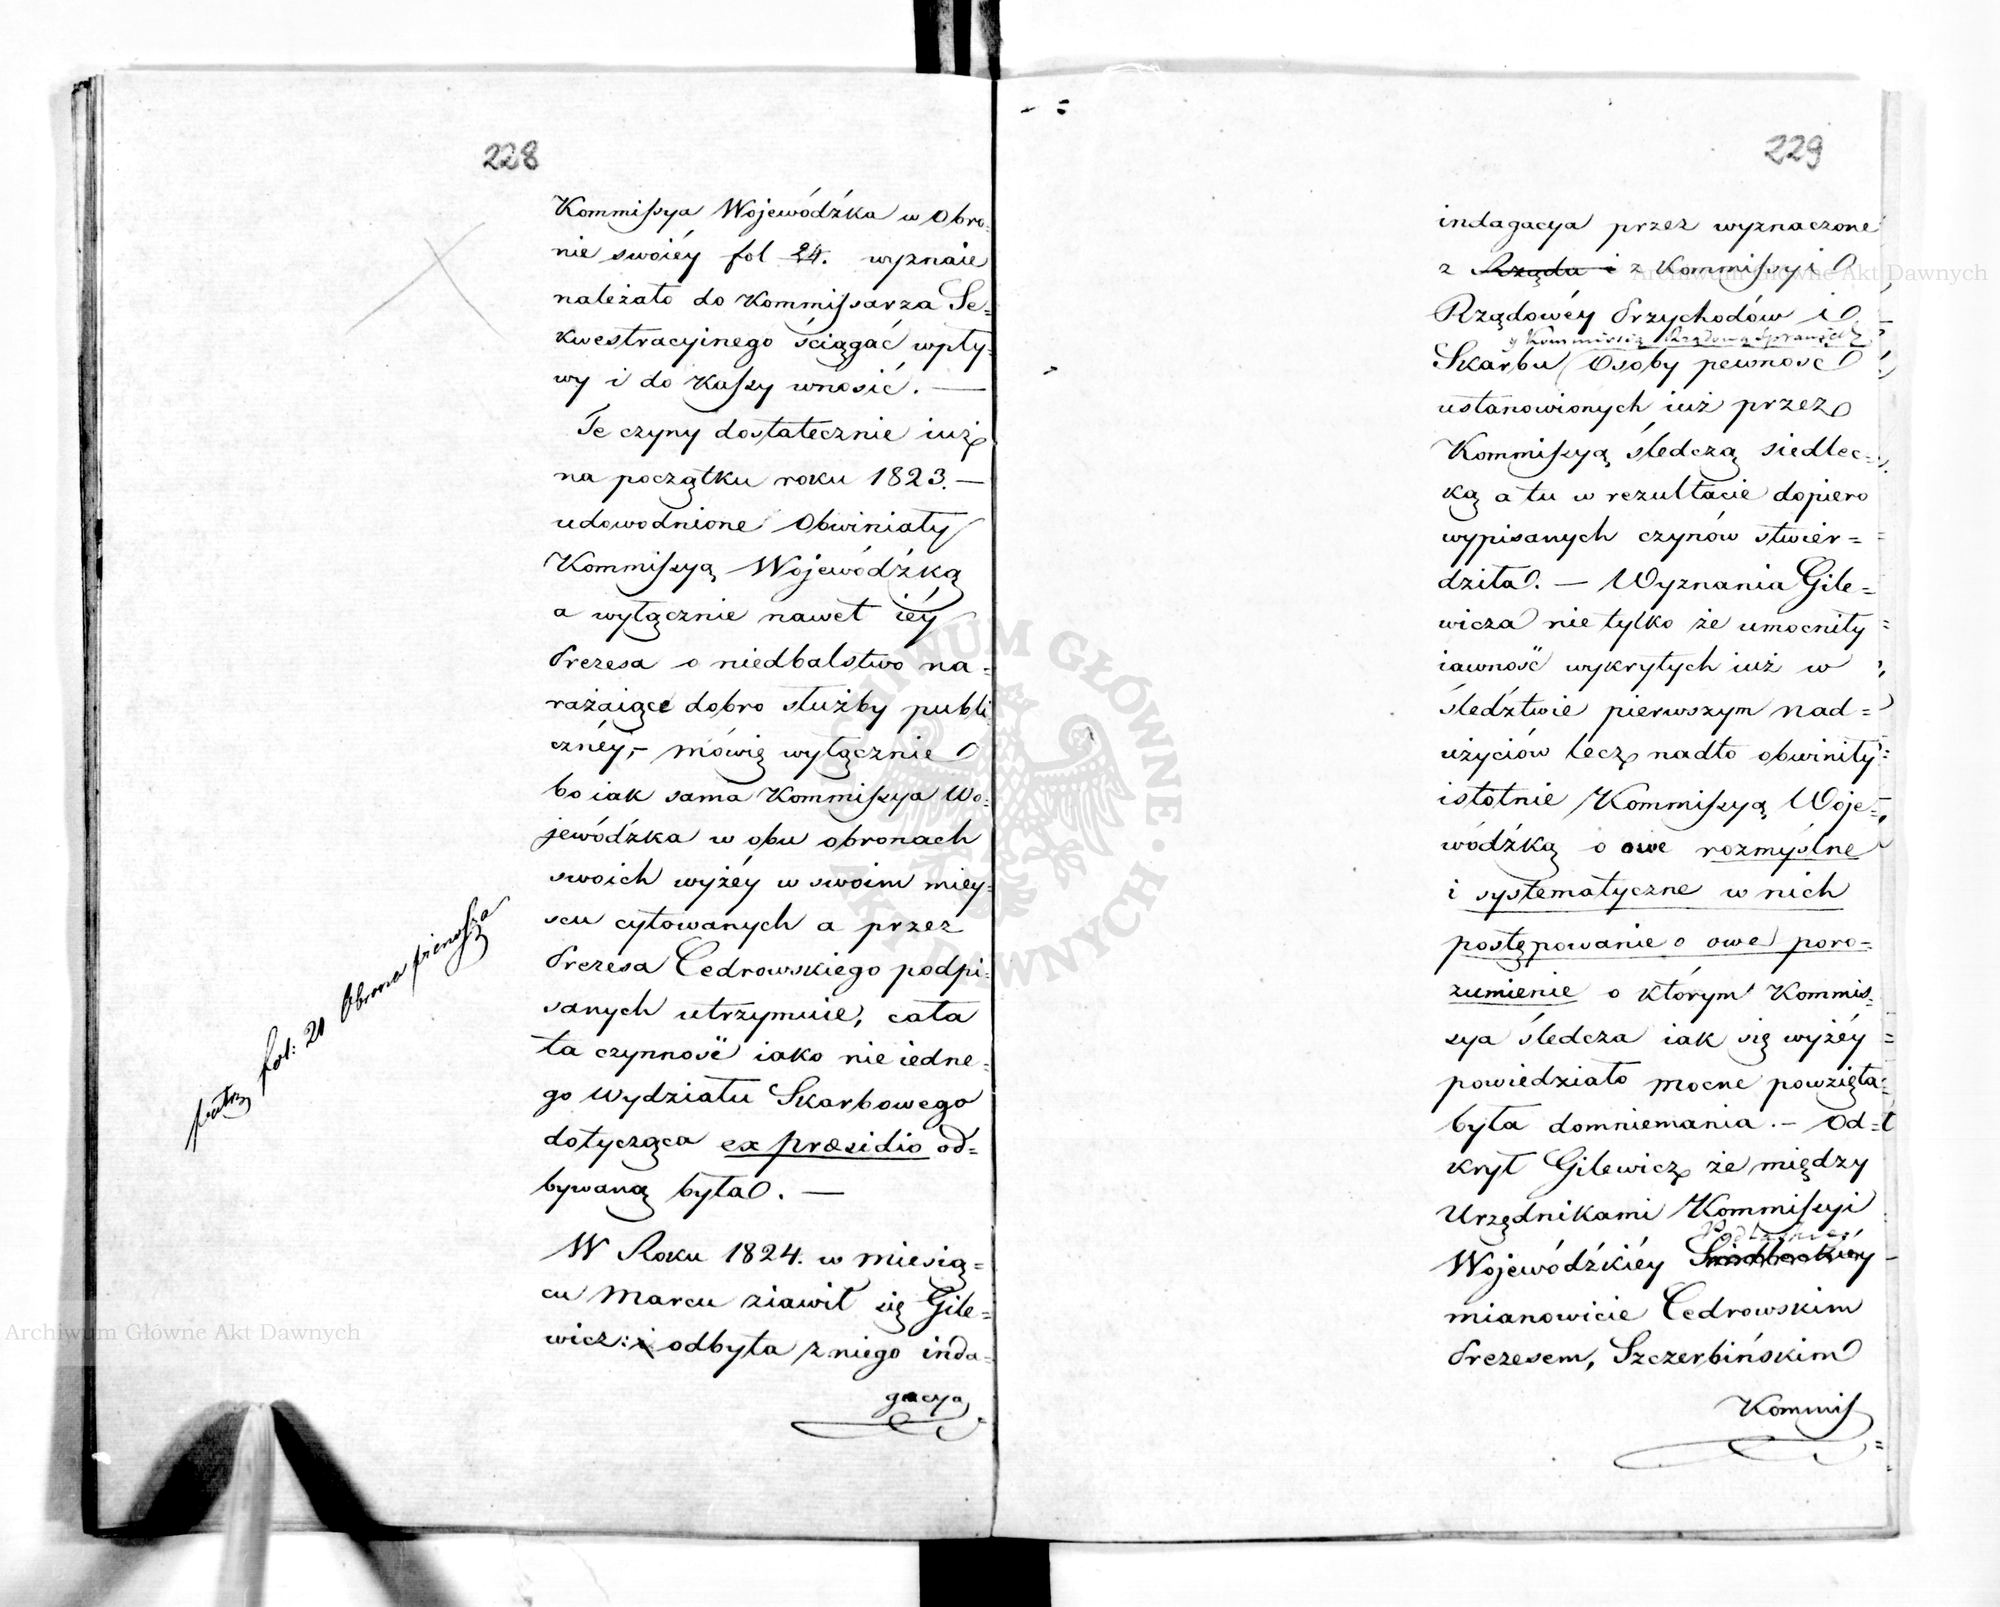 228
Kommissya Wojewódźka w Obro-
nie swoiéy fol 24. wyznaie
należało do Kommissarza Se-
kwestracyinego ściągać wpły-
wy i do Kassy wnosić. —
Te czyny dostatecznie iuż
na początku roku 1823. —
udowodnione obwiniały
Kommissyą Wojewódźką
a wyłącznie nawet iéy
Prezesa o niedbalstwo na-
rażaiące dobro służby publi
cznéy, – mówię wyłącznie
bo iak sama Kommissya Wo-
jewódźka w obu obronach
swoich wyżéy w swoim miey-
scu cytowanych a przez
Prezesa Cedrowskiego podpi-
sanych utrzymuie, cała
ta czynność iako nie iedne-
go Wydziału Skarbowego
dotycząca ex præsidio od-
bywaną była. —
W Roku 1824. w miesią-
cu Marcu ziawił się Gile-
wicz: i odbyta z niego inda-
gacya
patrz fol: 21 Obrona pierwsza
229
indagacya przez wyznaczone
z Rządu i z Kommissyi
Rządowéy Przychodów i
y Kommissią Rządową Sprawiedl
Skarbu Osoby pewność
ustanowionych iuż przez
Kommissyą śledczą siedlec-
ką a tu w rezultacie dopiero
wypisanych czynów stwier-
dziła. — Wyznania Gile-
wicza nie tylko że umocniły
iawność wykrytych iuż w
śledztwie pierwszym nad-
użyciów lecz nadto obwiniły
istotnie Kommissyą Woje-
wódźką o owe rozmyślne
i systematyczne w nich
postępowanie o owe poro-
zumienie o którym Kommis-
sya śledcza iak się wyżéy
powiedziało mocne powzięła
była domniemania. – Od-
krył Gilewicz że między
Urzędnikami Kommissyi
Podlaskiéy
Wojewódźkiéy Siedleckiéy
mianowicie Cedrowskim
Prezesem, Szczerbińskim
Kommis
Archiwum Główne Akt Dawnych
Archiwum Główne Akt Dawnych
ARCHIWUM GŁÓWNE AKT DAWNYCH